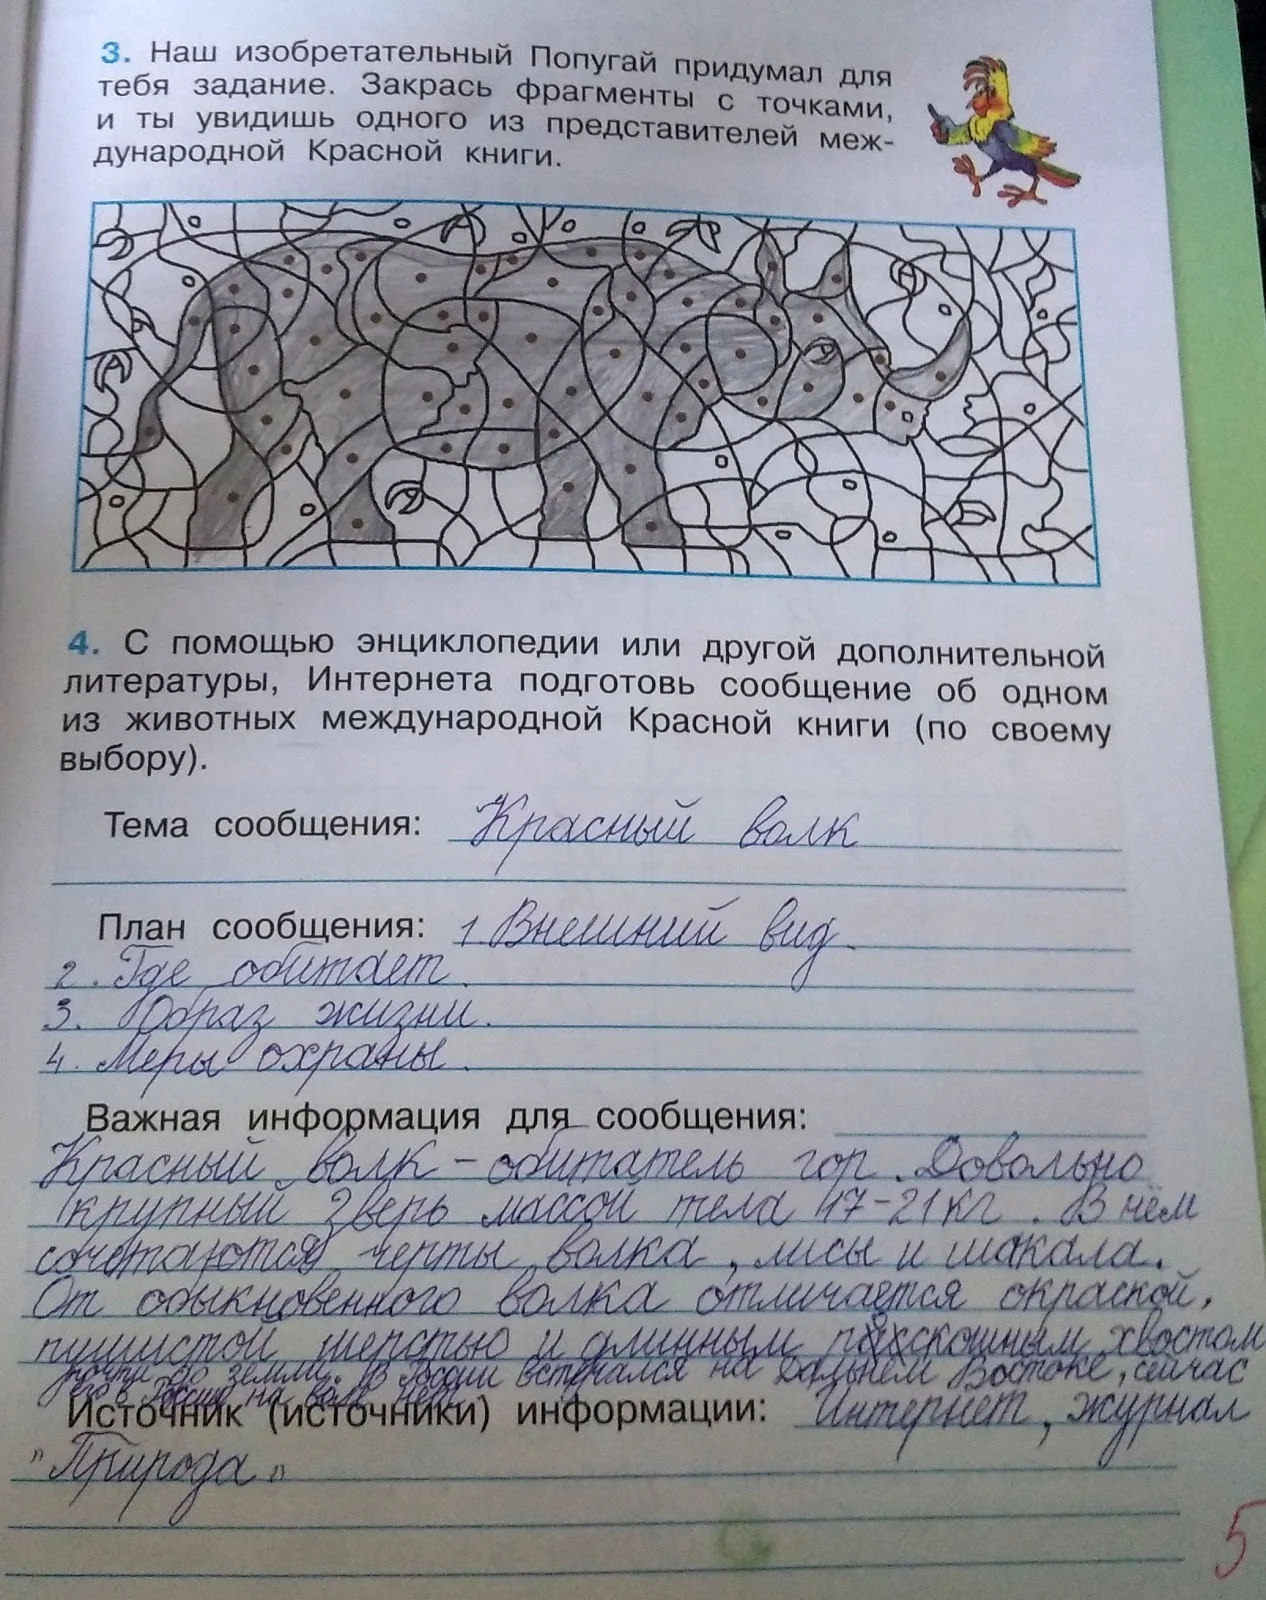 3. Наш изобретательный Попугай придумал для
тебя задание. Закрась фрагменты с точками,
и ты увидишь одного из представителей меж-
дународной Красной книги.
4. С помощью энциклопедии или другой дополнительной
литературы, Интернета подготовь сообщение об одном
из животных международной Красной книги (по своему
выбору).
Тема сообщения: Красный волк
План сообщения: 1 Внешний вид.
2. Где обитает.
3. Образ жизни.
4. Меры охраны.
Важная информация для сообщения:
Красный волк – обитатель гор. Довольно
крупный зверь массой тела 17-21 кг. В нём
сочетаются черты волка, лисы и шакала.
От обыкновенного волка отличается окраской,
пушистой шерстью и длинным хвостом
почти до земли. В России встречался на Дальнем Востоке, сейчас
его в России на воле нет.
Источник (источники) информации: Интернет, журнал
"Природа"
5